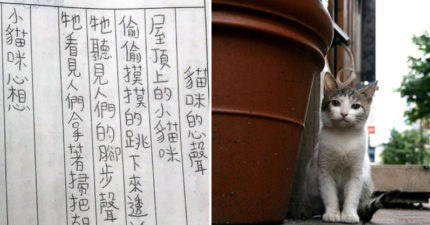 貓咪的心聲
屋頂上的小貓咪
偷偷摸摸的跳下來透
牠聽見人們的腳步聲
牠看見人們拿著掃把
小貓咪心想